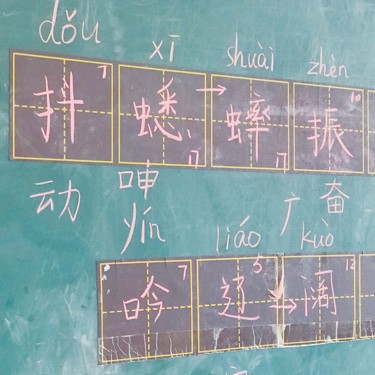 dǒu xī shuài zhèn
抖 7 蟋 17 → 蟀 17 振 10
动 呻 广 奋
yín liáo kuò
吟 7 辽 5 → 阔 12